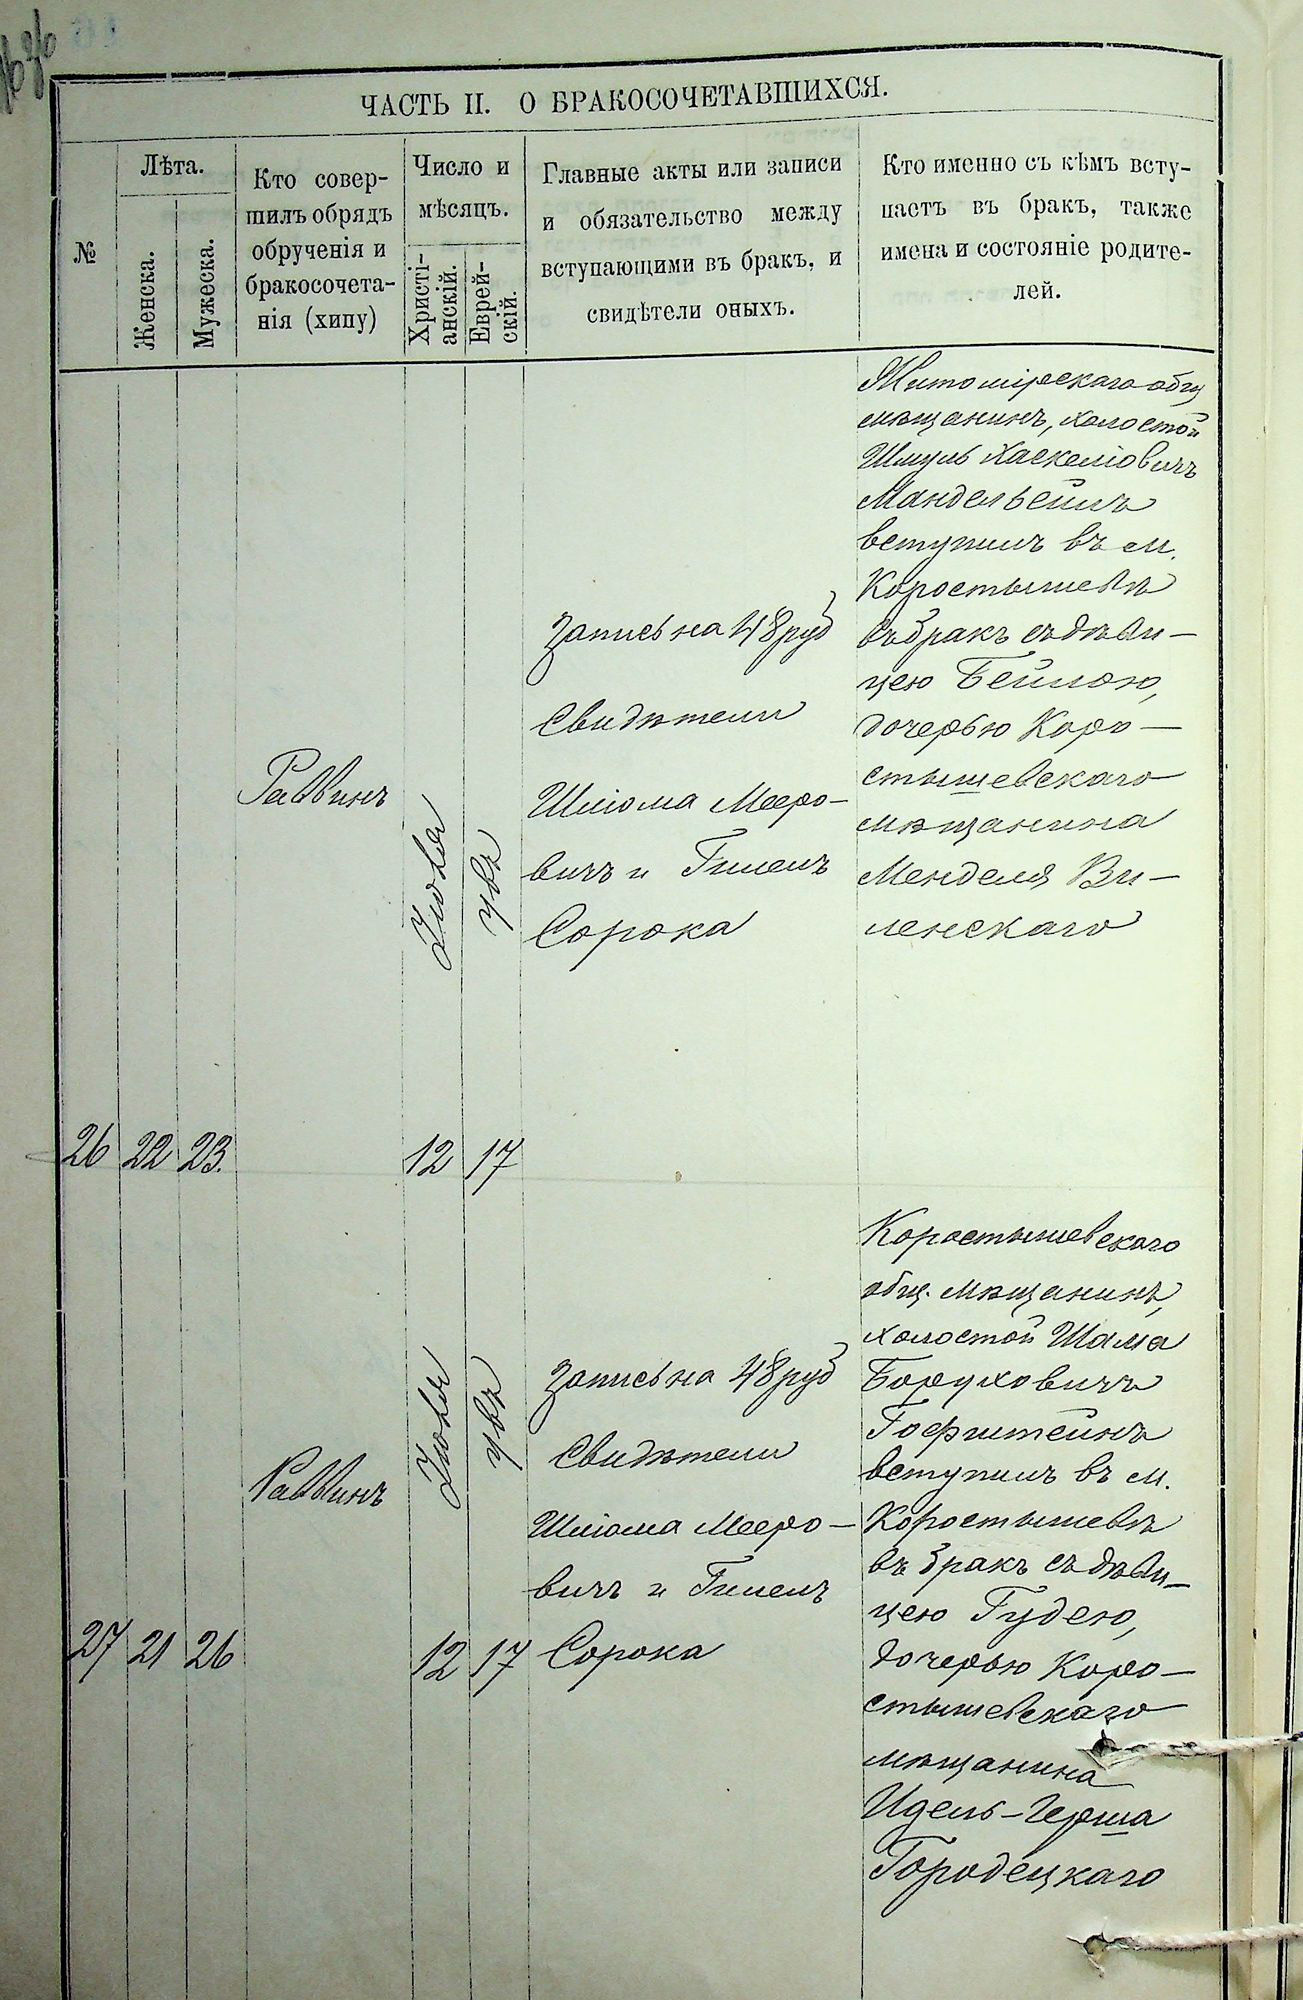 ЧАСТЬ II. О БРАКОСОЧЕТАВШИХСЯ.
№
Лѣта.
Женска.
Мужеска.
Кто совер-
шилъ обрядъ
обрученія и
бракосочета-
нія (хипу)
Число и
мѣсяцъ.
Христі-
анскій.
Еврей-
скій.
Главные акты или записи
и обязательство между
вступающими въ бракъ, и
свидѣтели оныхъ.
Кто именно съ кѣмъ всту-
паетъ въ бракъ, также
имена и состояніе родите-
лей.
26
22
23.
Раввинъ
Іюля
12
17
Запись на 48 руб
Свидѣтели
Шліома Мееро-
вичъ и Гилелъ
Сорока
Житомірскаго общ
мѣщанинъ, холостой
Шмуль Хаскеліовичъ
Мандельейлъ
вступилъ въ м.
Коростышевѣ
въ бракъ съ дѣви-
цею Бейлою,
дочерью Коро-
стышевскаго
мѣщанина
Менделя Ви-
ленскаго
27
21
26
Раввинъ
Іюля
12
17
Запись на 48 руб
Свидѣтели
Шліома Мееро-
вичъ и Гилелъ
Сорока
Коростышевскаго
общ. мѣщанинъ,
холостой Шама
Боруховичъ
Гофштейнъ
вступилъ въ м.
Коростышевѣ
въ бракъ съ дѣви-
цею Гудею,
дочерью Коро-
стышевскаго
мѣщанина
Идель-Герша
Городецкаго